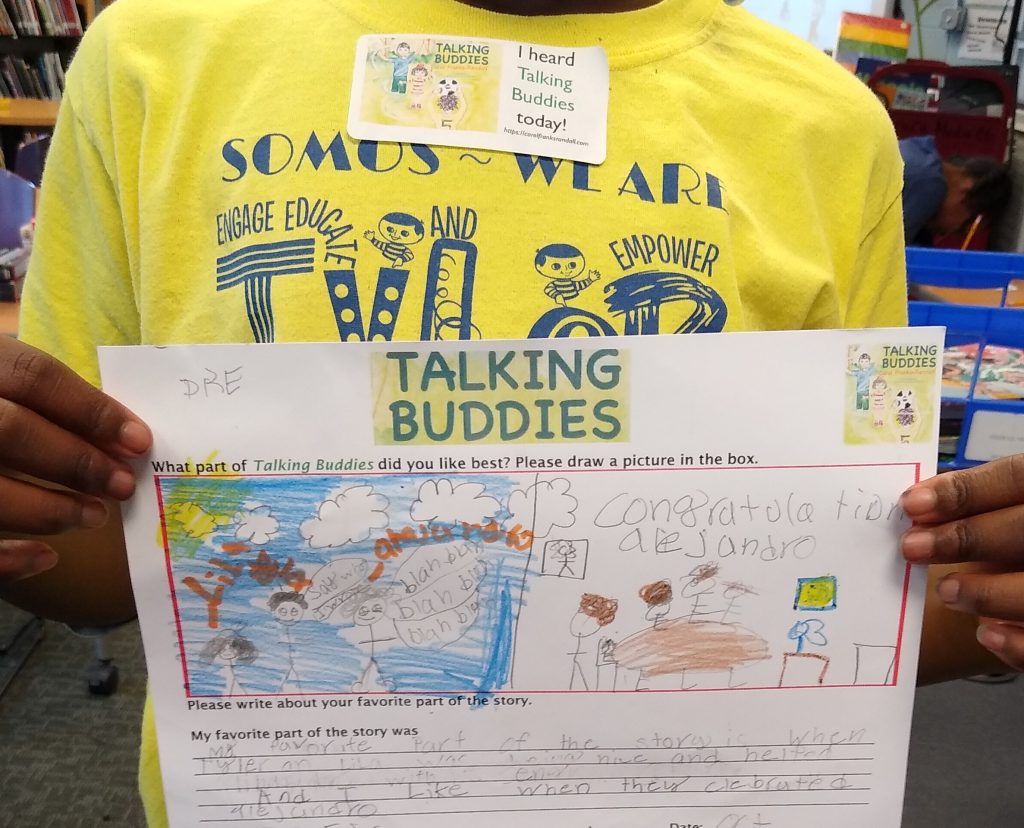 TALKING
BUDDIES
I heard
Talking
Buddies
today!
https://carolfranksrandall.com
SOMOS ~ WE ARE
ENGAGE EDUCATE AND EMPOWER
DRE
TALKING
BUDDIES
TALKING
BUDDIES
What part of Talking Buddies did you like best? Please draw a picture in the box.
Congratulation
alejandro
blah blah
blah blah
blah blah
Please write about your favorite part of the story.
My favorite part of the story was
my favorite part of the story is when
Tyler an Lila was being nice and helted
with
And I Like when they clebrated
alejandro
Date: